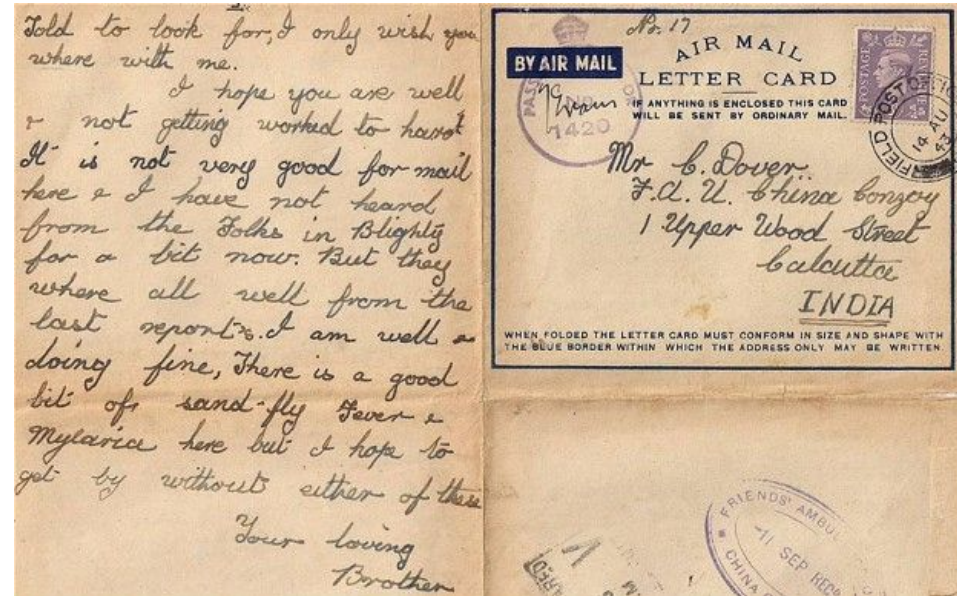 Told to look for, I only wish you
where with me.
I hope you are well
& not getting worked to hard
It is not very good for mail
here & I have not heard
from the Folks in Blighty
for a bit now. But they
where all well from the
last reports. I am well &
doing fine, There is a good
bit of sand-fly Fever &
Mylaria here but I hope to
get by without either of these
Your loving
Brother
No. 17
BY AIR MAIL
AIR MAIL
LETTER CARD
IF ANYTHING IS ENCLOSED THIS CARD
WILL BE SENT BY ORDINARY MAIL.
POSTAGE REVENUE
1420
FIELD POST OFFICE
14 AU
43
Mr C. Dover.
F.A.U. China Convoy
1 Upper Wood Street
Calcutta
INDIA
WHEN FOLDED THE LETTER CARD MUST CONFORM IN SIZE AND SHAPE WITH
THE BLUE BORDER WITHIN WHICH THE ADDRESS ONLY MAY BE WRITTEN.
FRIENDS' AMBU
-11 SEP REC
CHINA